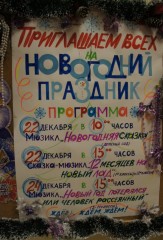 Приглашаем всех
на
новогодний
праздник
программа
22 декабря в 10 00 часов
мюзикл „Новогодний
22 декабря в 15 00 часов
сказка-мюзикл „12 месяцев на
новый лад"
24 декабря в 15 00 часов
мюзикл „Новый год
или человек рассеянный"
ждём! ждём! ждём!